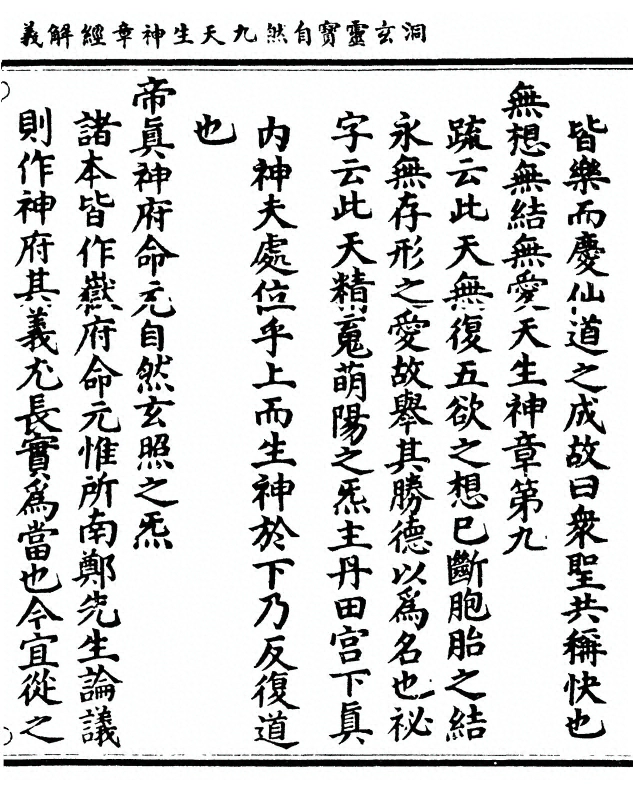 洞玄靈寳自然九天生神章經解義
皆樂而慶仙道之成故曰衆聖共稱快也
無想無結無愛天生神章第九
䟽云此天無復五欲之想已斷胞胎之結
永無存形之愛故舉其勝德以爲名也祕
字云此天精䰟萌陽之炁主丹田宫下真
内神夫處位乎上而生神於下乃反復道
也
帝眞神府命元自然玄照之炁
諸本皆作嶽府命元惟所南鄭先生論議
則作神府其義尤長實爲當也今宜從之